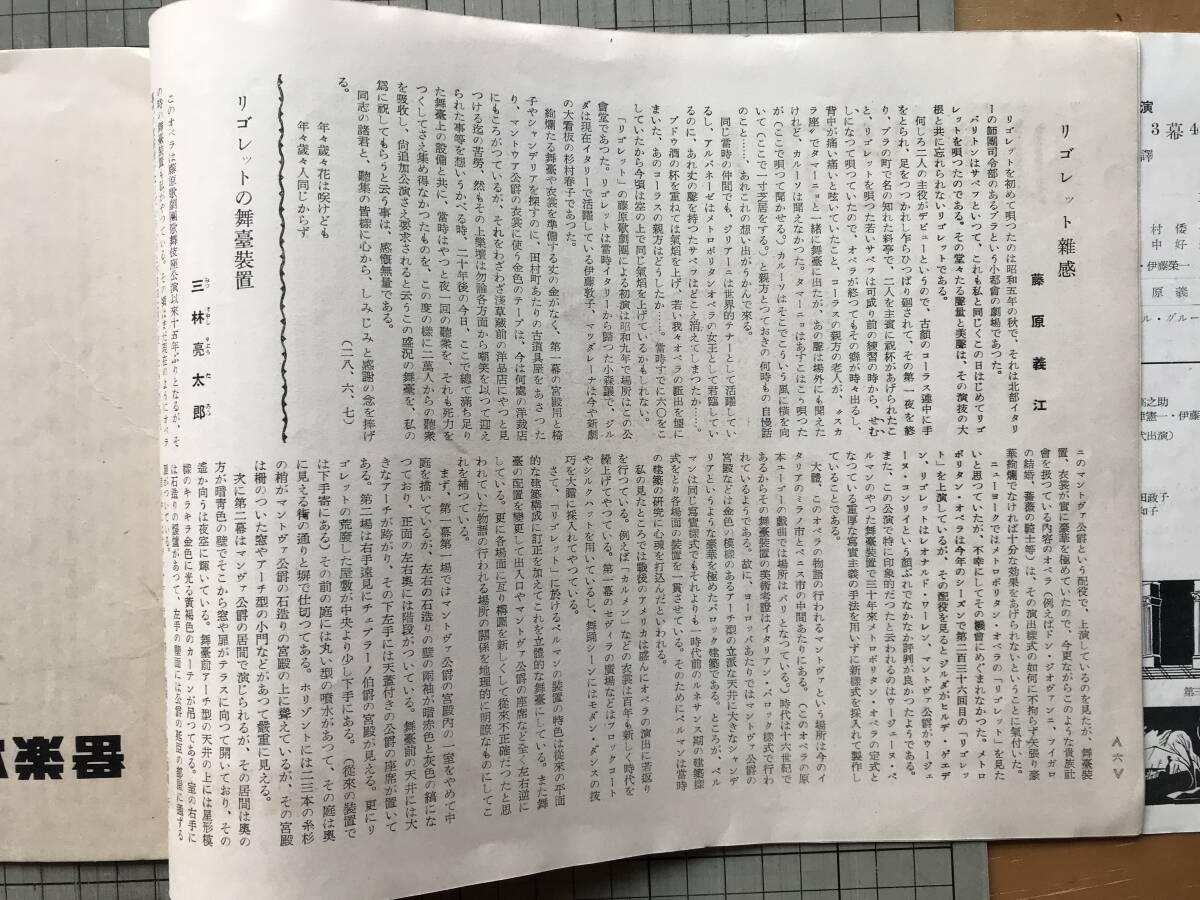 リゴレット雜感
藤原義江
リゴレットを初めて唄つたのは昭和五年の秋で、それは北部イタリ
ーの師團司令部のあるプラという小都會の劇場であつた。
バリトンはサペフといつて、これも私と同じくこの日はじめてリゴ
レットを唄つたのである。その堂々たる聲量と美聲は、その演技の大
根と共に忘れられないリゴレットである。
何しろ二人の主役がデビューというので、古顔のコーラス連中に手
をとられ、足をつつかれし乍らひつぱり廻されて、その第一夜を終
り、プラの町で名の知れた料亭で、二人を主賓に祝杯があげられたこ
と、リゴレットを唄つた若いサペフは可成り前の練習の時から、せむ
しになつて唄つていたので、オペラが終つてもその癖が時々出るし、
背中が痛い痛いと呟いていたこと、コーラスの親方の老人が、〝スカ
ラ座〟でタマーニョと一緒に舞臺に出たが、あの聲は場外にも聞えた
けれど、カルーソは聞えなかつた。タマーニョはあすこはこう唄つた
が（ここで唄つて聞かせる。）カルーソはそこでこういう風に横を向
いて（ここで一寸芝居をする。）と親方とつておきの何時もの自慢話
のこと……、あれこれの想い出がうかんで來る。
同じ當時の仲間でも、ジリアーニは世界的テナーとして活躍してい
るし、アルバネーゼはメトロポリタンオペラの女王として君臨してい
るのに、あれ丈の聲を持つたサペフはどこえ消えてしまつたか……。
ブドウ酒の杯を重ねては氣焰を上げ、若い我々オペラの駈出を煙に
まいた、あのコーラスの親方はどうしたか……。當時すでに六〇をこ
していたから今頃は空の上で同じ氣焰を上げているかもしれない。
「リゴレット」の藤原歌劇團による初演は昭和九年で場所はこの公
會堂であつた。リゴレットは當時イタリーから歸つた小森讓で、ジル
ダは現在イタリーで活躍している伊藤敦子、マッダレーナは今や新劇
の大看板の杉村春子であつた。
絢爛たる舞臺や衣裳を準備する丈の金がなく、第一幕の宮殿用と椅
子やシャンデリアを探すのに、田村町あたりの古道具屋をあさつた
り、マントウァ公爵の衣裳に使う金色のテープは、今は何處の洋裁店
にもころがつているが、それをわざわざ淺草藏前の洋品店にやつと見
つける迄の苦勞、然もその上樂壇は勿論各方面から嘲笑を以つて迎え
られた事等を想いうかべる時、二十年後の今日、ここで總て滿ち足り
た舞臺上の設備と共に、當時はやつと夜一回の聽衆を、それも死力を
つくしてさえ集め得なかつたものを、この度の樣に二萬人からの聽衆
を吸收し、尙追加公演さえ要求されると云うこの盛況の舞臺を、私の
爲に祝してもらうと云う事は、感慨無量である。
同志の諸君と、聽集の皆樣に心から、しみじみと感謝の念を捧げ
る。
（二八、六、七）
年々歲々花は咲けども
年々歲々人同じからず
リゴレットの舞臺裝置
三林亮太郎
このオペラは藤原歌劇團歌舞伎座公演以來十五年ぶりとなるが、そ
ニのマントヴァ公爵という配役で、上演しているのを見たが、舞臺裝
置、衣裳が實に豪華を極めていたので、今更ながらこのような貴族社
會を扱つている內容のオペラ（例えばドン・ジオヴァンニ、フィガロ
の結婚、薔薇の騎士等）は、その演出樣式の如何に不拘らず矢張り豪
華絢爛でなければ十分な效果をあげられないということに氣付いた。
ニューヨークではメトロポリタン・オペラの「リゴレット」を見た
いと思つていたが、不幸にしてその機會にめぐまれなかつた。メトロ
ポリタン・オペラは今年のシーズンで第二百三十六回目の「リゴレッ
ト」を上演しているが、その配役を見るとジルダがヒルデ・ゲエデ
ン、リゴレットはレオナルド・ワーレン、マントヴァ公爵がウージェ
ーヌ・コンリイという顏ぶれでなかなか評判が良かつたようである。
また、この公演で特に印象的だつたと云われるのはウジェーヌ・ベ
ルマンのやつた舞臺裝置で三十年來メトロポリタン・オペラの定式と
なつている重厚な寫實主義の手法を用いずに新樣式を採入れて製作し
ていることである。
大體、このオペラの物語の行われるマントヴァという場所は今のイ
タリアのミラノ市とベニス市の中間あたりにある。（このオペラの原
本ユーゴーの戯曲では場所はパリとなつている。）時代は十六世紀で
あるからその舞臺裝置の美術考證はイタリアン・バロック樣式で行わ
れているようである。故に、ヨーロッパあたりではマントヴァ公爵の
宮殿などは金色の模樣のあるアーチ型の立派な天井に大きなシャンデ
リアというような豪華を極めたバロック建築である。とこが、ベル
マンは同じ寫實樣式でもそれよりも一時代前のルネサンス期の建築樣
式をとり各場面の裝置を一貫させている。そのためにベルマンは當時
の建築の研究に心魂を打込んだといわれる。
私の見たところでは戰後のアメリカは盛んにオペラの演出に若返り
を行つている。例えば「カルメン」などの衣裳は百年近く新しく時代を
繰上げてやつている。第一幕のセヴィラの廣場などはフロックコート
やシルクハットを用いているし、舞踊シーンにはモダン・ダンスの技
巧を大膽に採入れてやつている。
さて、「リゴレット」に於けるベルマンの裝置の特色は從來の平面
的な建築構成に訂正を加えてこれを立體的な舞臺にしている。また舞
臺の配置を變更して出入口やマントヴァ公爵の座席など全く左右逆に
している。更に各場面に互り構圖を新しくして從來不正確だつたと思
われていた物語の行われる場所の關係を地理的に明瞭なものにしてこ
れを補つている。
まず、第一幕第一場ではマントヴァ公爵の宮殿內の一室をやめて中
庭を描いているが、左右の石造りの壁の兩袖が暗赤色と灰色の縞にな
つており、正面の左右奥には階段がついている。舞臺前の天井には大
きなアーチが跨がり、その下左手には天蓋付きの公爵の座席が置いて
ある。第二場は右手遠見にチェプラーノ伯爵の宮殿が見える。更にリ
ゴレットの荒廢した屋敷が中央より少し下手にある。（從來の裝置で
は下手寄にある）その前の庭には丸い型の噴水があつて、その庭は奥
に見える街の通りと塀で仕切つてある。ホリゾントには二三本の糸杉
の梢がマントヴァ公爵の石造りの宮殿の上に聳えているが、その宮殿
は柵のついた窓やアーチ型の小門などがあつて嚴重に見える。
次に第二幕はマンヴァ公爵の居間で演じられるが、その居間は奥の
方が暗青色の壁でそこから窓や扉がテラスに向つて開いており、その
遙か向うは夜空に輝いている。舞臺前アーチ型の天井の上には星形模
樣のキラキラ金色に光る黃褐色のカーテンが吊つてある。室の右手に
は石造りの煖爐があつて、左手の壁面には公爵の寢室の部屋に通ずる
扉がついている。
∧六∨
演
3幕4
譯
村倭
中好
・伊藤榮一
原義
ル・グルー
高之助
憲一・伊藤
代出演）
田政子
和子
第三
器楽